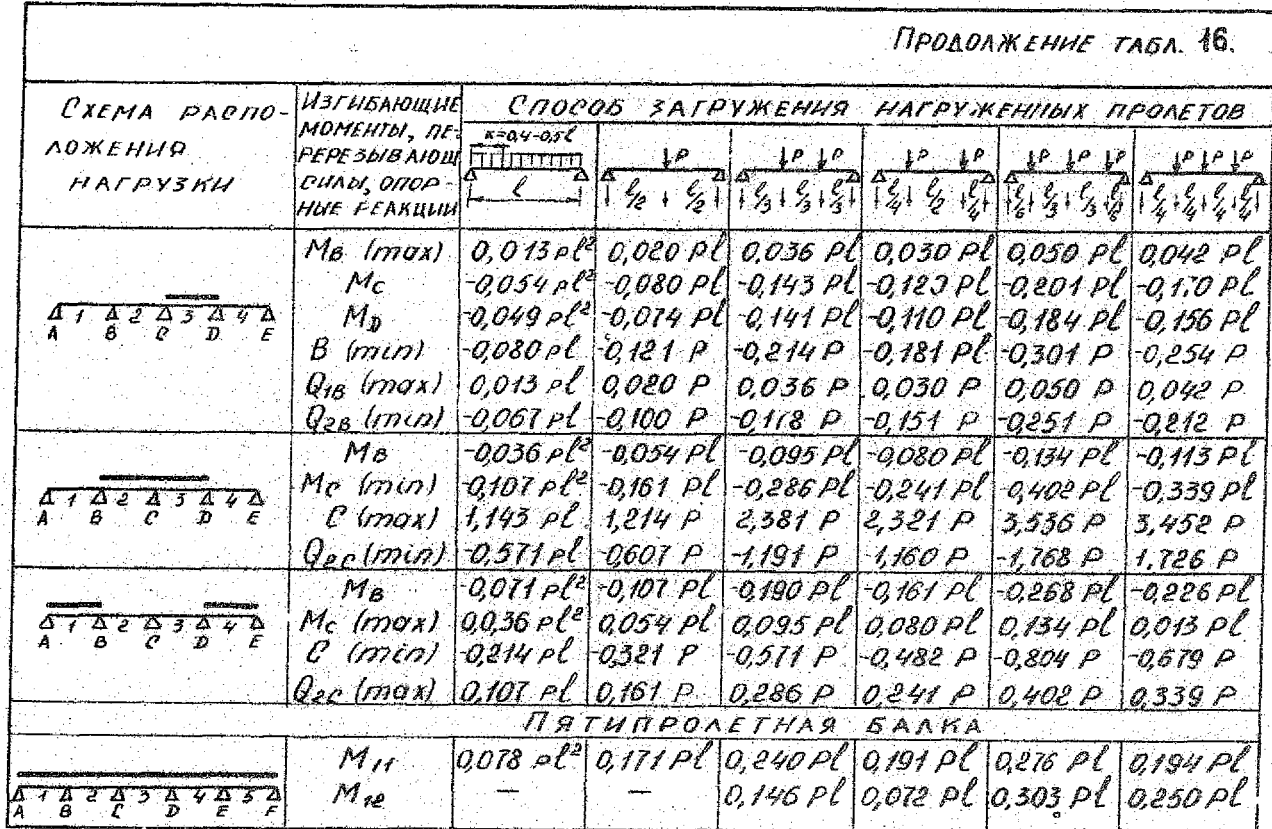 ПРОДОЛЖЕНИЕ ТАБЛ. 16.
СХЕМА РАСПОЛОЖЕНИЯ НАГРУЗКИ
ИЗГИБАЮЩИЕ МОМЕНТЫ, ПЕРЕРЕЗЫВАЮЩ СИЛЫ, ОПОРНЫЕ РЕАКЦИИ
СПОСОБ ЗАГРУЖЕНИЯ НАГРУЖЕННЫХ ПРОЛЕТОВ
к=0,4-0,5ℓ
ℓ
P
ℓ/2 ℓ/2
P P
ℓ/3 ℓ/3 ℓ/3
P P
ℓ/4 ℓ/2 ℓ/4
P P P
ℓ/6 ℓ/3 ℓ/3 ℓ/6
P P P
ℓ/4 ℓ/4 ℓ/4 ℓ/4
1 2 3 4
A B C D E
M_B (max) 0,013 pℓ² 0,020 Pℓ 0,036 Pℓ 0,030 Pℓ 0,050 Pℓ 0,042 Pℓ
M_C -0,054 pℓ² -0,080 Pℓ -0,143 Pℓ -0,120 Pℓ -0,201 Pℓ -0,170 Pℓ
M_D -0,049 pℓ² -0,074 Pℓ -0,141 Pℓ -0,110 Pℓ -0,184 Pℓ -0,156 Pℓ
B (min) -0,080 pℓ -0,121 P -0,214 P -0,181 Pℓ -0,301 P -0,254 P
Q_1B (max) 0,013 pℓ 0,020 P 0,036 P 0,030 P 0,050 P 0,042 P
Q_2B (min) -0,067 pℓ -0,100 P -0,118 P -0,151 P -0,251 P -0,212 P
1 2 3 4
A B C D E
M_B -0,036 pℓ² -0,054 Pℓ -0,095 Pℓ -0,080 Pℓ -0,134 Pℓ -0,113 Pℓ
M_C (min) -0,107 pℓ² -0,161 Pℓ -0,286 Pℓ -0,241 Pℓ -0,402 Pℓ -0,339 Pℓ
C (max) 1,143 pℓ 1,214 P 2,381 P 2,321 P 3,536 P 3,452 P
Q_2C (min) -0,571 pℓ -0,607 P -1,191 P -1,160 P -1,768 P 1,726 P
1 2 3 4
A B C D E
M_B -0,071 pℓ² -0,107 Pℓ -0,190 Pℓ -0,161 Pℓ -0,268 Pℓ -0,226 Pℓ
M_C (max) 0,0,36 pℓ² 0,054 Pℓ 0,095 Pℓ 0,080 Pℓ 0,134 Pℓ 0,013 Pℓ
C (min) -0,214 pℓ -0,321 P -0,571 P -0,482 P -0,804 P -0,679 P
Q_2C (max) 0,107 pℓ 0,161 P 0,286 P 0,241 P 0,402 P 0,339 P
ПЯТИПРОЛЕТНАЯ БАЛКА
1 2 3 4 5
A B C D E F
M_11 0,078 pℓ² 0,171 Pℓ 0,240 Pℓ 0,191 Pℓ 0,276 Pℓ 0,194 Pℓ
M_12 — — 0,146 Pℓ 0,072 Pℓ 0,303 Pℓ 0,250 Pℓ